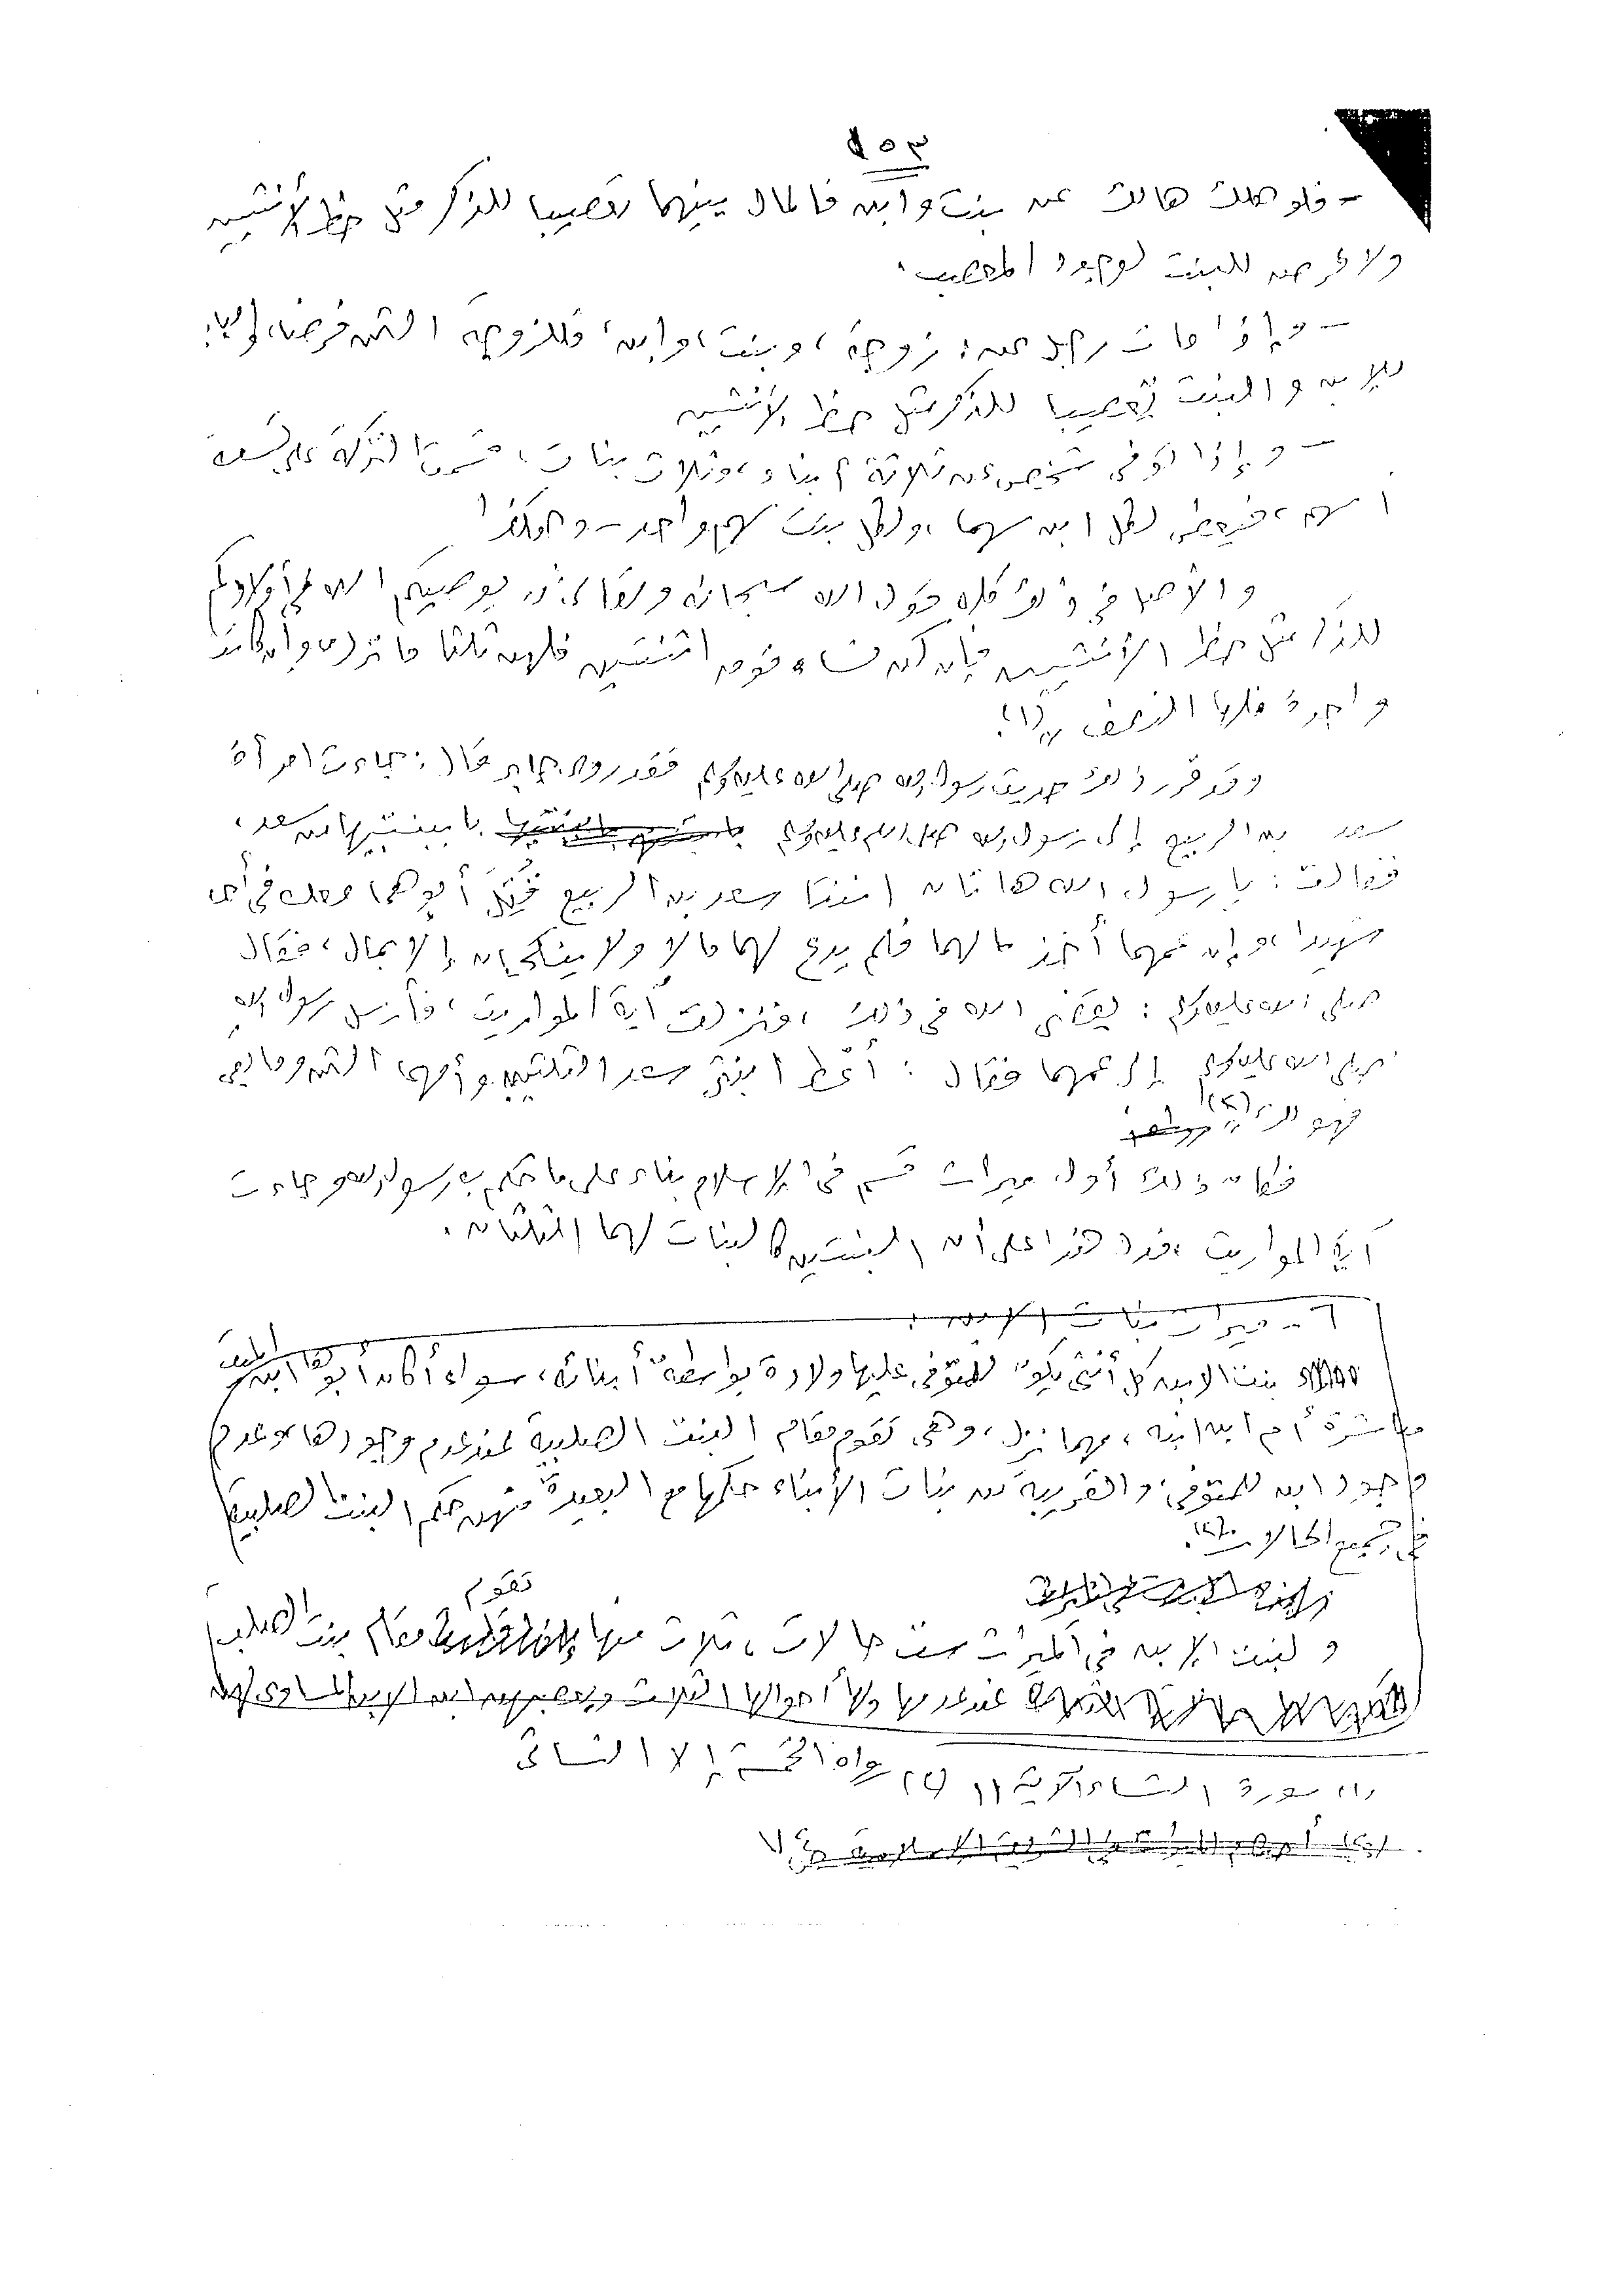 - فلو هلك هالك عن بنت وابن فالمال بينهما تعصيبا للذكر مثل حظ الأنثيين
ولا فرض للبنت لوجود المعصب.
- وإذا مات رجل عن: زوجة، وبنت، وابن، فللزوجة الثمن فرضا،
للابن والبنت تعصيبا للذكر مثل حظ الأنثيين
- وإذا توفى شخص عن ثلاثة أبناء، وثلاث بنات، قسمت التركة على تسعة
أسهم، فيعطى لكل ابن سهما، ولكل بنت سهم واحد - وهكذا
والأصل في ذلك كله قول الله سبحانه وتعالى: يوصيكم الله في أولادكم
للذكر مثل حظ الأنثيين فإن كن نساء فوق اثنتين فلهن ثلثا ما ترك وإن كانت
واحدة فلها النصف (١)
وقد قرر ذلك حديث رسول الله صلى الله عليه وسلم فقد روى جابر قال: جاءت امرأة
سعد بن الربيع إلى رسول الله صلى الله عليه وسلم بابنتيها من سعد،
فقالت: يا رسول الله هاتان ابنتا سعد بن الربيع قُتِلَ أبوهما معك في أحد
شهيدا، وإن عمهما أخذ مالهما فلم يدع لهما مالا ولا ينكحان إلا بمال، فقال
صلى الله عليه وسلم: يقضى الله في ذلك، فنزلت آية المواريث، فأرسل رسول الله
صلى الله عليه وسلم إلى عمهما فقال: أعط ابنتي سعد الثلثين وأمهما الثمن وما بقي
فهو لك (٢)
فكان ذلك أول ميراث قسم في الإسلام بناء على ما حكم به رسول الله وجاءت
آية المواريث، فدل هذا على أن البنتين كالبنات لهما الثلثان.
٢ - ميراث بنات الابن:
بنت الابن كل أنثى يكون للمتوفى عليها ولادة بواسطة أبنائه، سواء أكان أبوها ابن الميت
مباشرة أم ابن ابنه، مهما نزل، وهي تقوم مقام البنت الصلبية عند عدم وجودها وعدم
وجود ابن للمتوفى، والقريبة من بنات الأبناء حكمها مع البعيدة منهن حكم البنت الصلبية
في جميع الحالات.
ولبنت الابن في الميراث ست حالات، ثلاث منها تقوم مقام بنت الصلب
عند عدمها ولها أحوالها الثلاث
(١) سورة النساء الآية ١١ (٢) رواه الخمسة إلا النسائي